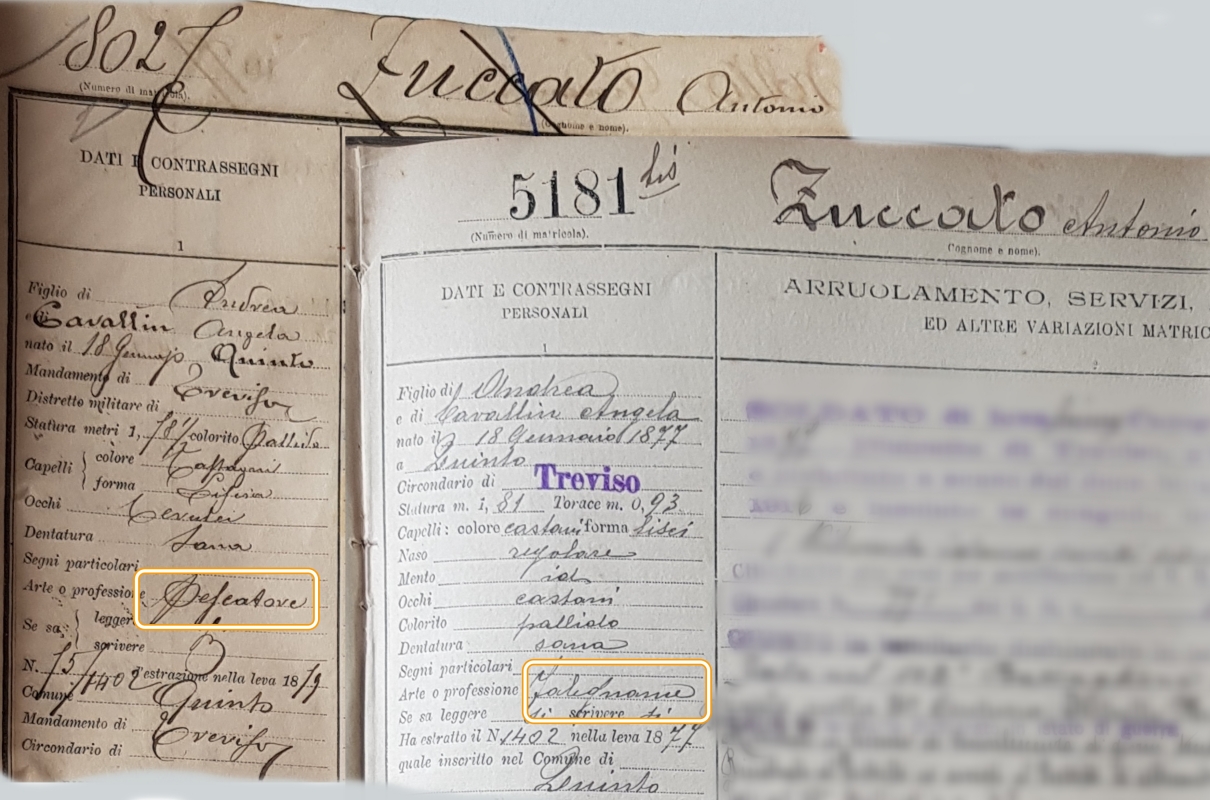 8027
Zuccato Antonio
(Numero di matricola).
(Cognome e nome).
DATI E CONTRASSEGNI
PERSONALI
1
Figlio di Andrea
e di Cavallin Angela
nato il 18 Gennajo Quinto
Mandamento di Treviso
Distretto militare di
Statura metri 1, 81 colorito Pallido
Capelli colore Castagni
forma Liscia
Occhi Cerulei
Dentatura Sana
Segni particolari
Arte o professione Pescatore
Se sa: leggere
scrivere
N. 1402 d'estrazione nella leva 18
Comune Quinto
Mandamento di Treviso
Circondario di
5181 bis
Zuccato Antonio
(Numero di matricola).
Cognome e nome).
DATI E CONTRASSEGNI
PERSONALI
1
Figlio di Andrea
e di Cavallin Angela
nato il 18 Gennaio 1877
a Quinto
Circondario di Treviso
Statura m. 1, 81 Torace m. 0, 93
Capelli: colore castani forma lisci
Naso regolare
Mento id
Occhi castani
Colorito pallido
Dentatura sana
Segni particolari
Arte o professione Falegname
Se sa leggere si scrivere si
Ha estratto il N. 1402 nella leva 1877
quale inscritto nel Comune di
Quinto
ARRUOLAMENTO, SERVIZI,
ED ALTRE VARIAZIONI MATRIC
2